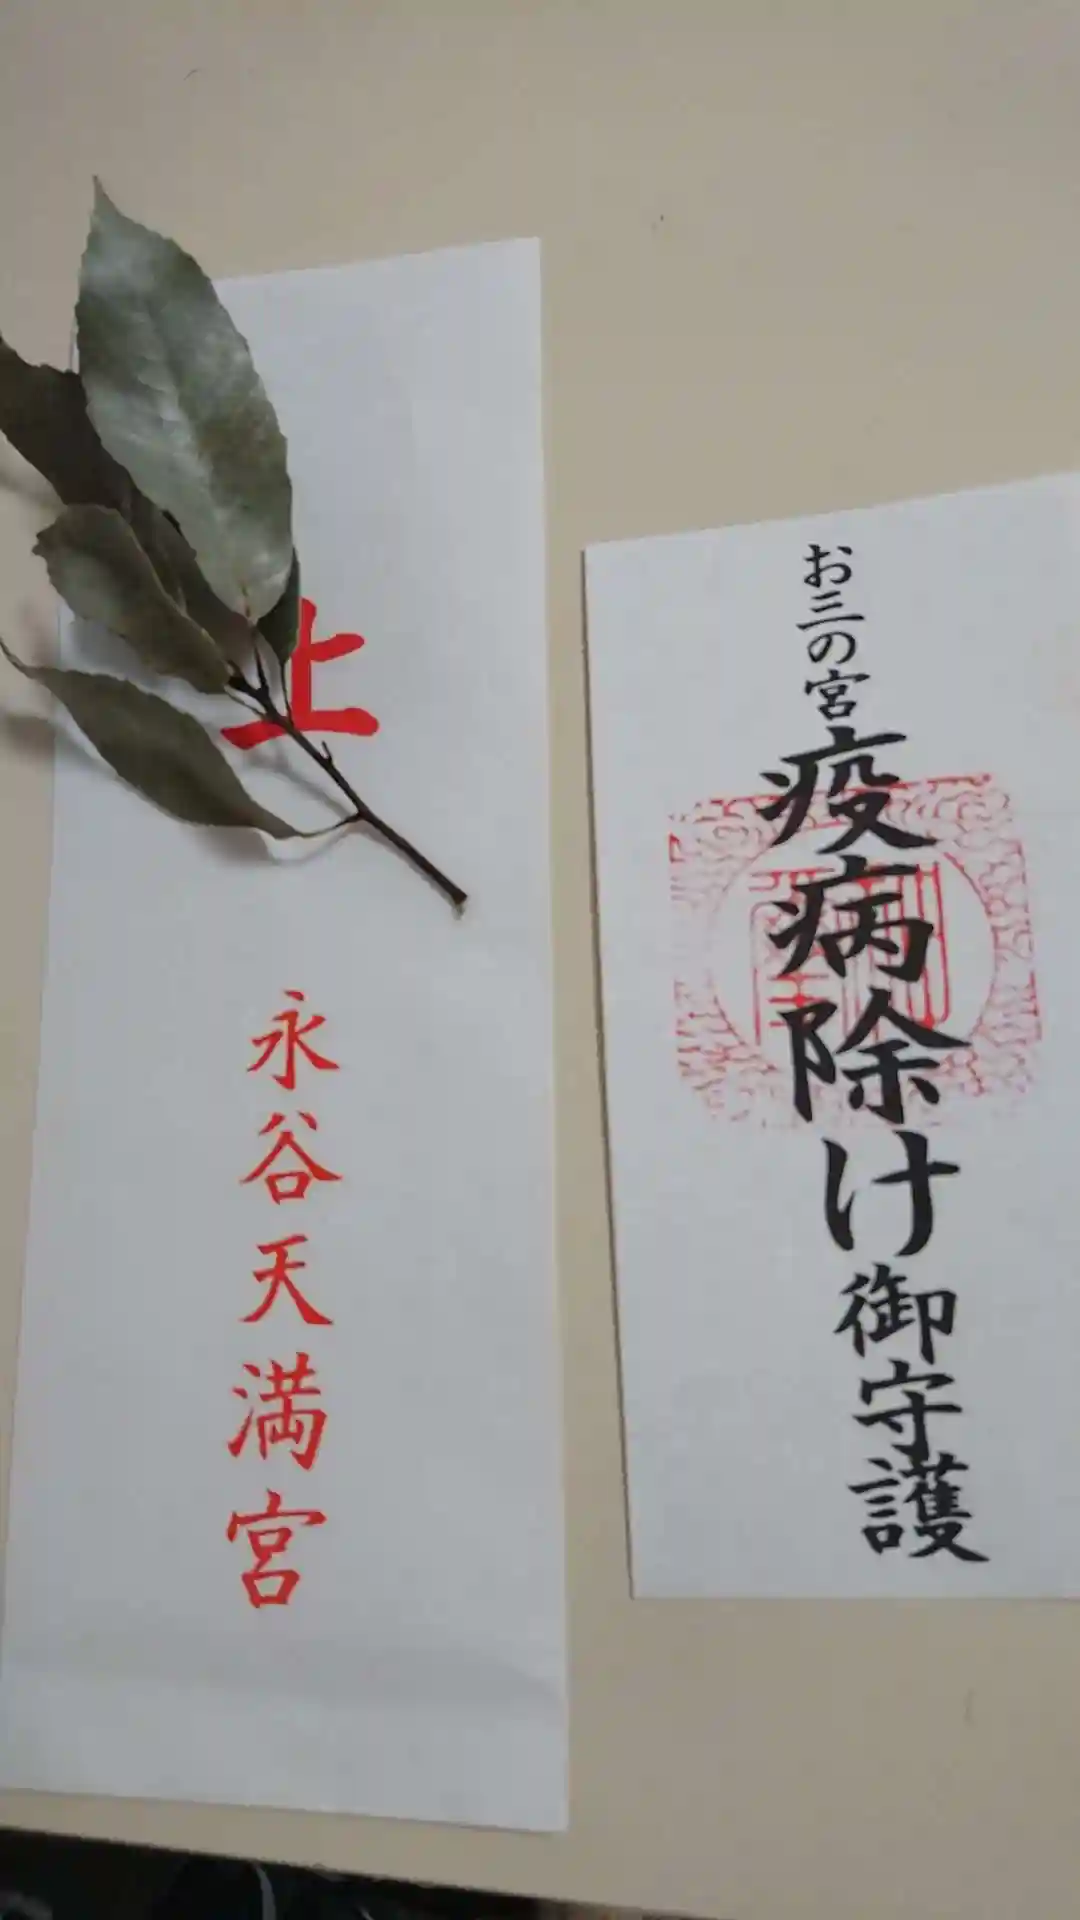 上
永谷天満宮
お三の宮
疫病除け
御守護